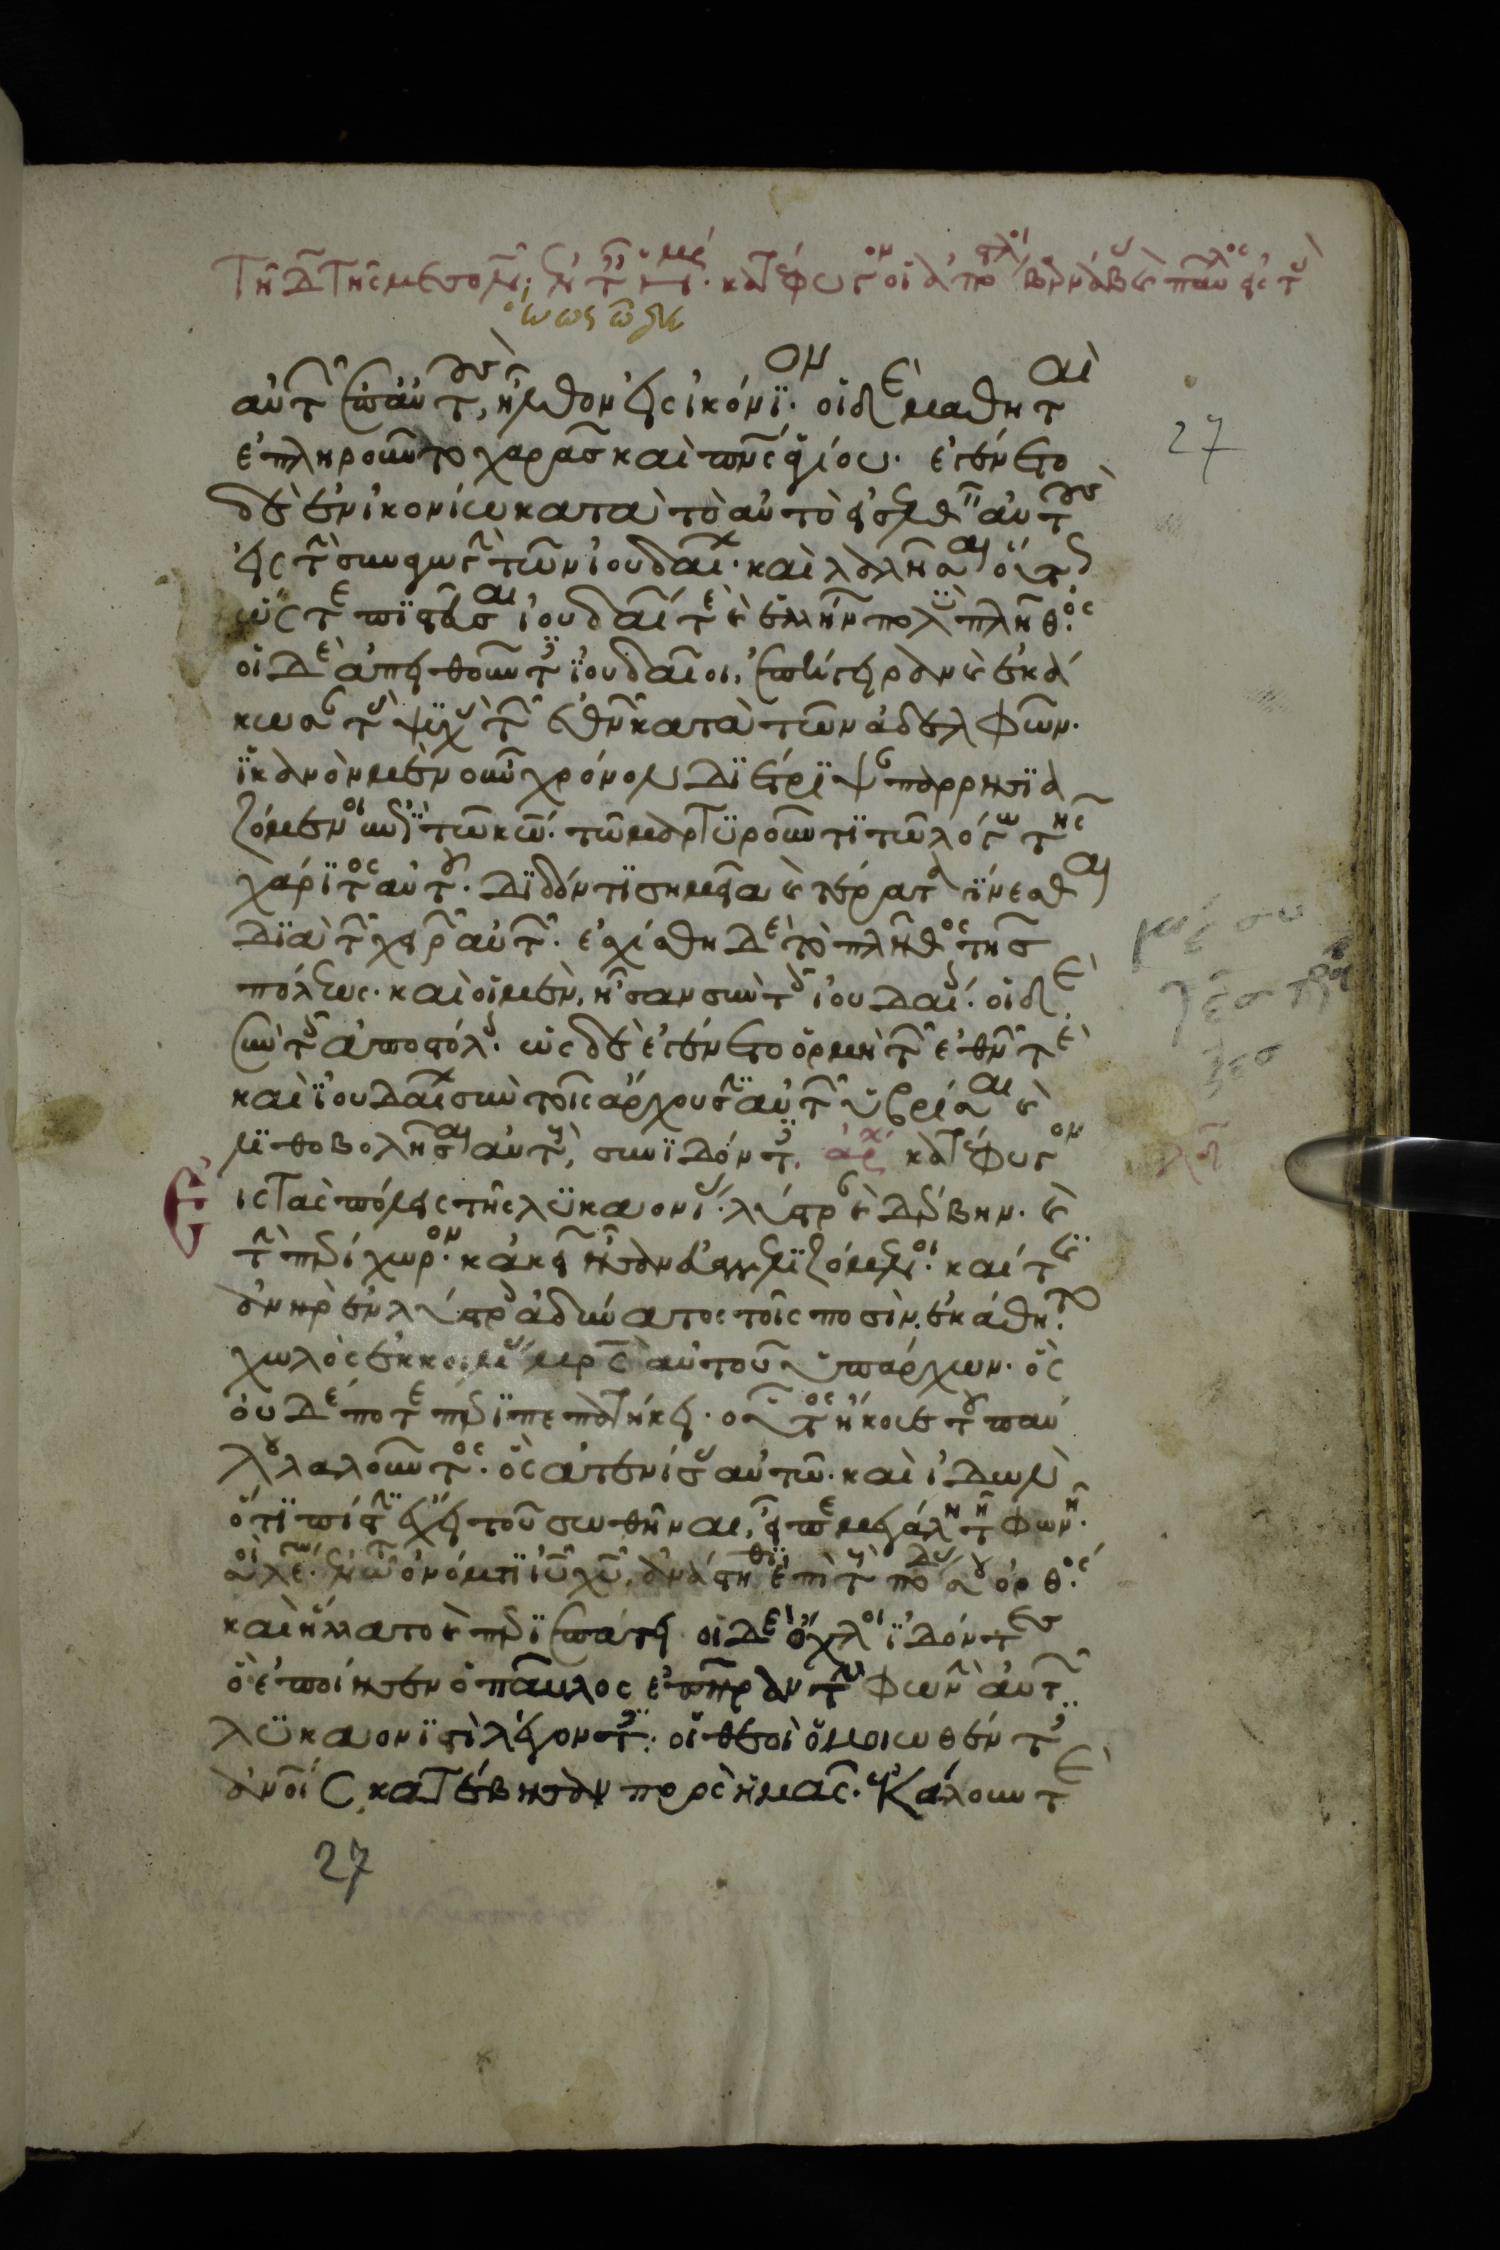 27
αὐτῶν ἐπ αὐτοὺς, ἦλθον εἰς ἰκόνϊον· οἱ δὲ μαθηταὶ
ἐπληροῦντο χαρᾶς καὶ πνς ἁγίου· ἐγένετο
δὲ ἐν ἰκονίω κατὰ τὸ αὐτὸ εἰσελθεῖν αὐτοὺς
εἰς τὴν συναγωγὴν τῶν ἰουδαίων· καὶ λαλῆσαι οὕτως
ὥστε πϊστεῦσαι ἰουδαίων τε καὶ ἑλλήνων πολὺ πλῆθος·
οἱ δὲ ἀπειθοῦντες ϊουδαῖοι, ἐπήγειραν καὶ ἐκά
κωσαν τὰς ψϋχὰς τῶν ἐθνῶν κατὰ τῶν ἀδελφῶν·
ϊκανὸν μὲν οὖν χρόνον δϊέτρϊψαν παρρησϊα
ζόμενοι ἐπὶ τῶ κω· τῶ μαρτϋροῦντϊ τῶ λόγω τῆς
χάρϊτος αὐτοῦ· δϊδόντϊ σημεῖα καὶ τέρατα γίνεσθαι
δϊὰ τῶν χειρῶν αὐτῶν· ἐσχίσθη δὲ τὸ πλῆθος τῆς
πόλεως· καὶ οἱ μὲν, ἦσαν σὺν τοῖς ἰουδαίοις· οἱ δὲ
σὺν τοῖς ἀποστόλοις· ὡς δὲ ἐγένετο ὁρμὴ τῶν ἐθνῶν τε
καὶ ϊουδαίων σὺν τοῖς ἄρχουσϊν αὐτῶν ὑβρίσαι καὶ
λϊθοβολῆσαι αὐτοὺς, συνϊδόντες, ἀρχ κατέφυγον
εἰς τὰς πόλεις τῆς λϋκαονίας· λύστραν καὶ δέρβην· καὶ
τὴν περίχωρον· κἀκεῖ ἦσαν εὐαγγελϊζόμενοι· καί τις
ἀνὴρ ἐν λύστροις ἀδύνατος τοῖς ποσὶν, ἐκάθητο
χωλὸς ἐκ κοιλίας μρς αὐτοῦ ὑπάρχων· ὃς
οὐδέποτε περϊπεπατήκει· οὗτος ἤκουσε τοῦ παύ
λου λαλοῦντος· ὃς ἀτενίσας αὐτῶ· καὶ ἰδὼν
ὅτϊ πίστϊν ἔχει τοῦ σωθῆναι, εἶπε μεγάλη τῆ φωνῆ·
σοὶ λέγω· ἐν τῶ ὀνόματϊ ιυ χυ, ἀνάστηθϊ ἐπὶ τοὺς πόδας σου ὀρθός·
καὶ ἥλλατο καὶ περϊεπάτει οἱ δὲ ὄχλοι ϊδόντες
ὃ ἐποίησεν ὁ παῦλος ἐπῆραν τὴν φωνὴν αὐτῶν
λϋκαονϊστὶ λέγοντες· οἱ θεοὶ ὁμοιωθέντες
ἀνοις κατέβησαν πρὸς ἡμᾶς· ἐκάλουν τε
27